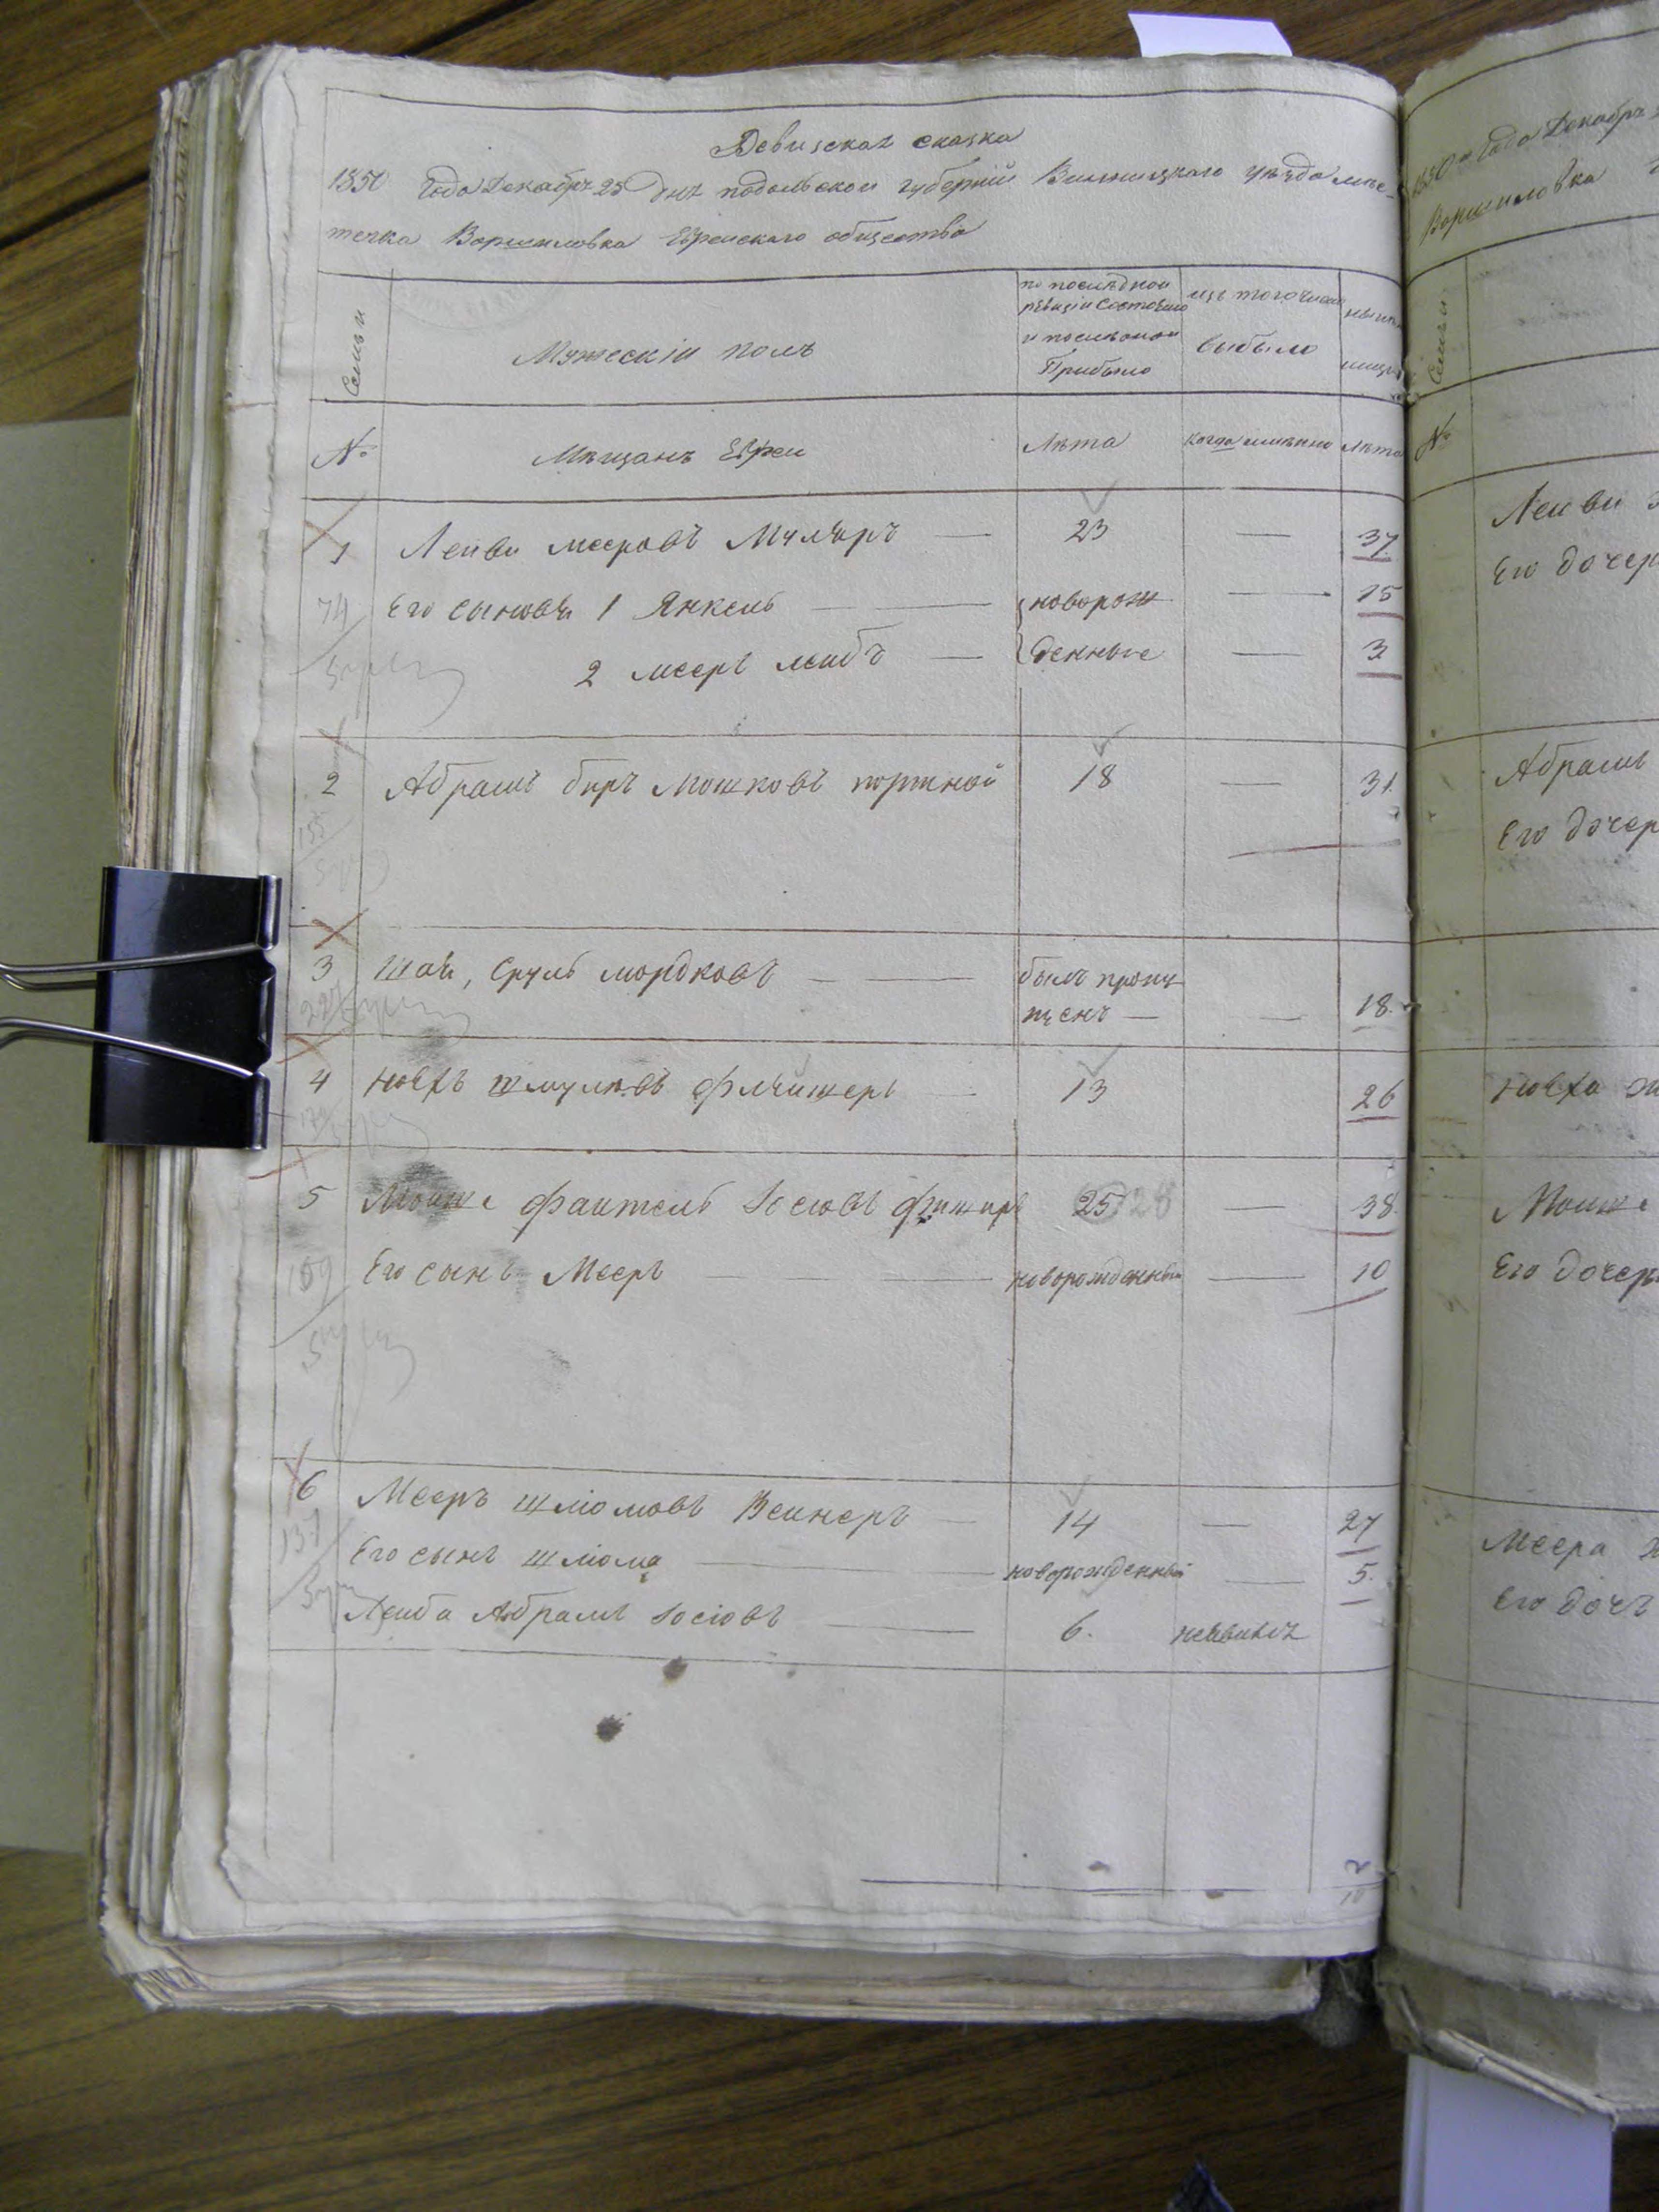 Ревизская сказка
1850 Года Декабря 25 дня подольской губернии Винницкаго уезда мес-
течка Ворошиловка Еврейскаго общества
Семьи
Мужескій полъ
по последной ревизіи состояло и после оной Прибыло
изъ того числа выбыло
№
Мещанъ Евреи
Лета
когда именно
Лета
1 Леиви мееровъ Муляръ — 23 — 37
74 Его сыновя 1 Янкель — новорож — 15
2 меерь леибъ — денные — 3
2 Абрамъ беръ Мошковъ портной 18 — 31
155
3 Шая, Сруль мордковъ — былъ пропу
щенъ — — 18
4 шмулевъ 13 26
5 Моише фаитель Іосіовъ 25 28 — 38
159 Его сынъ Мееръ — новорожденный — 10
6 Мееръ шліомовъ Веинеръ — 14 — 27
137 Его сынъ шліома — новорожденный — 5
Леиба Абрамъ Іосіовъ — 6. неявился
2
10
1850 Года Декабря
Ворошиловка
Семьи
№
Леиви
Его дочер
Абрамъ
Его дочер
Моише
Его дочеръ
Меера
Его дочъ